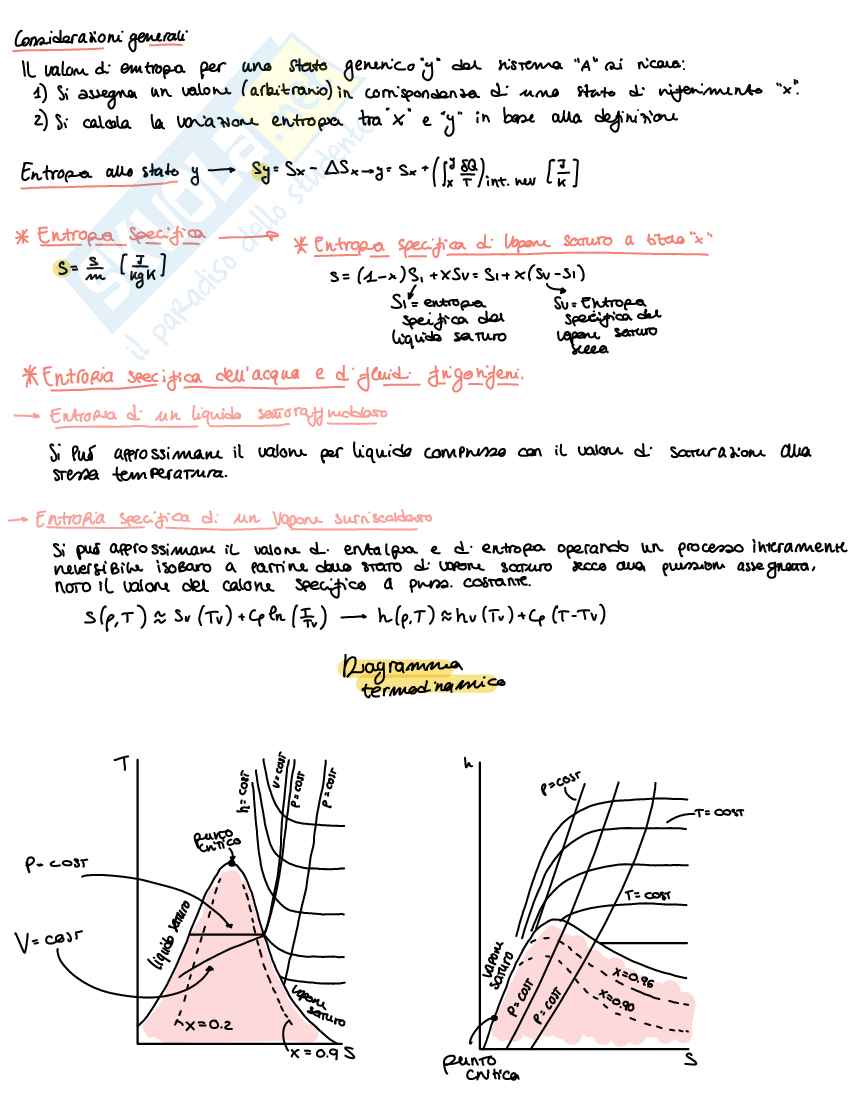 Considerazioni generali
Il valore di entropia per uno stato generico "y" del sistema "A" si ricava:
1) Si assegna un valore (arbitrario) in corrispondenza di uno stato di riferimento "x".
2) Si calcola la variazione entropia tra "x" e "y" in base alla definizione
Entropia allo stato y → Sy = Sx - ΔSx→y = Sx + (∫x^y δQ/T)int. rev [J/K]
* Entropia Specifica → * Entropia specifica di Vapore saturo a titolo "x"
s = S/m [J/kg K]
s = (1-x)Sl + xSv = Sl + x(Sv - Sl)
Sl = entropia specifica del liquido saturo
Sv = Entropia specifica del vapore saturo secco
* Entropia specifica dell'acqua e di fluidi frigoriferi.
→ Entropia di un liquido sottoraffreddato
Si può approssimare il valore per liquido compresso con il valore di saturazione alla
stessa temperatura.
→ Entropia specifica di un Vapore surriscaldato
Si può approssimare il valore di entalpia e di entropia operando un processo interamente
reversibile isobaro a partire dallo stato di vapore saturo secco alla pressione assegnata,
noto il valore del calore specifico a press. costante.
s(p,T) ≈ Sv(Tv) + Cp ln(T/Tv) → h(p,T) ≈ hv(Tv) + Cp(T-Tv)
Diagramma
termodinamico
T
h = cost
V = cost
p = cost
p = cost
punto
critico
P = cost
V = cost
liquido saturo
vapore
saturo
x = 0.2
x = 0.9
S
h
p = cost
T = cost
T = cost
vapore
saturo
p = cost
p = cost
x = 0.96
x = 0.90
punto
critica
S
SKUOLA.net
il paradiso dello studente